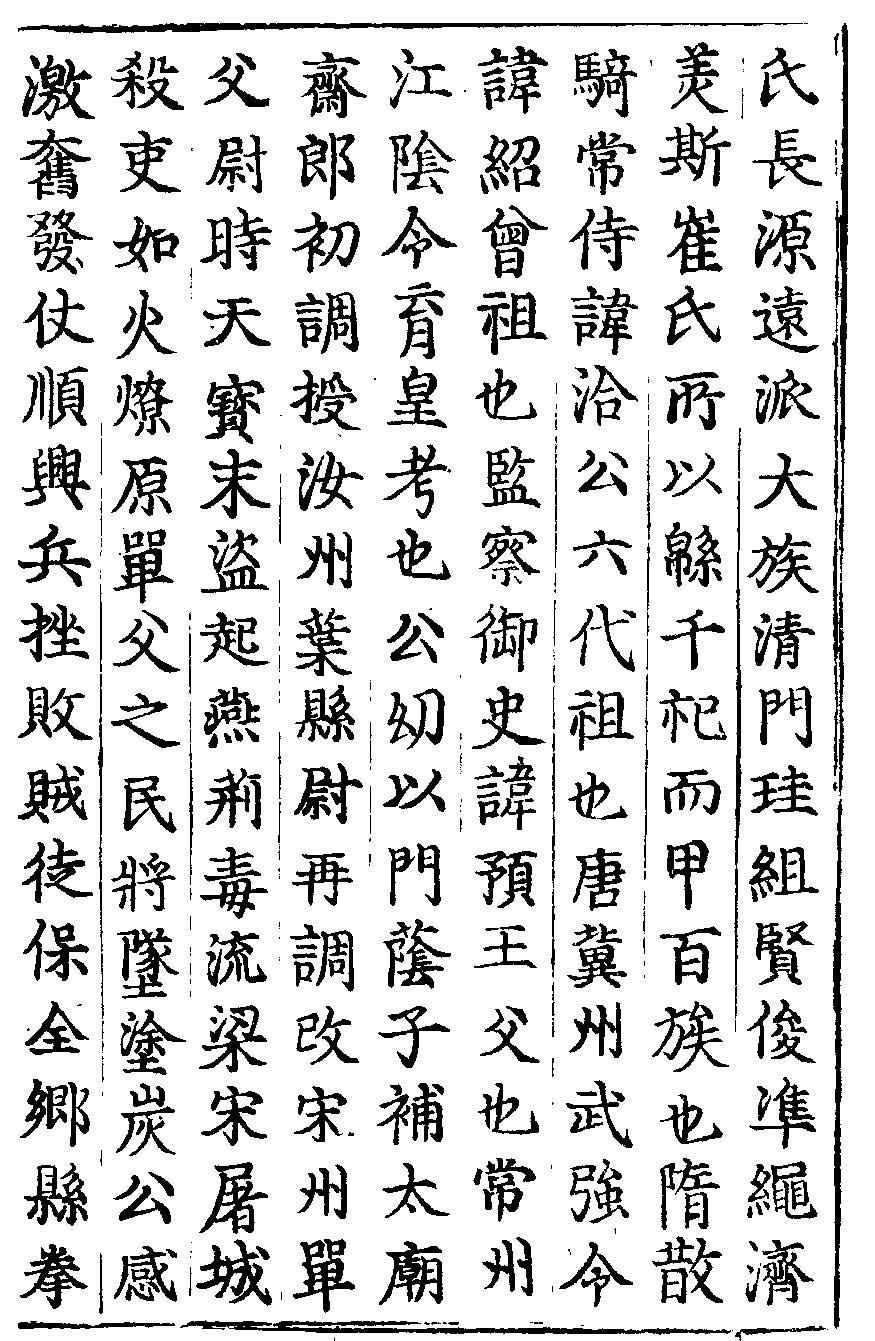 氏長源遠派大族清門珪組賢俊準繩濟
羙斯崔氏所以緜千祀而甲百族也隋散
騎常侍諱洽公六代祖也唐冀州武強令
諱紹曾祖也監察御史諱預王父也常州
江陰令育皇考也公幼以門蔭子補太廟
齋郎初調授汝州葉縣尉再調改宋州單
父尉時天寶末盜起燕荊毒流梁宋屠城
殺吏如火燎原單父之民將墜塗炭公感
激奮發仗順興兵挫敗賊徒保全鄉縣拳